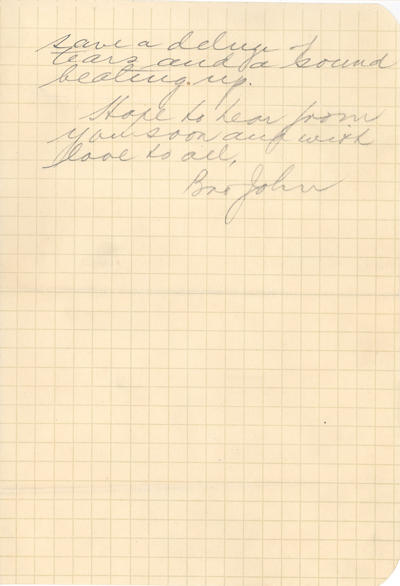 save a deluge of
tears and a sound
beating up.
Hope to hear from
you soon and with
love to all,
Bro John